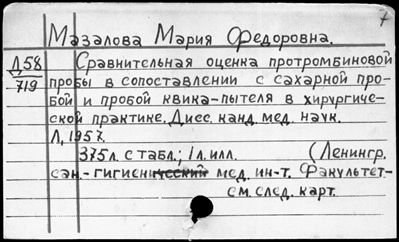 7
Мазалова Мария Федоровна.
Д58
719
Сравнительная оценка протромбиновой
пробы в сопоставлении с сахарной про-
бой и пробой квика-пытеля в хирургиче-
ской практике. Дисс. канд. мед. наук.
Л, 1957.
375 л. с табл.; 1 л. илл. (Ленингр.
сан.-гигиенический мед. ин-т. Факультет-
см. след. карт.